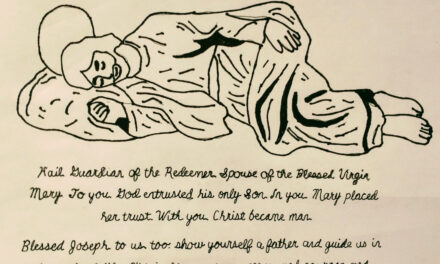 Hail Guardian of the Redeemer Spouse of the Blessed Virgin
Mary. To you God entrusted his only Son. In you Mary placed
her trust. With you Christ became man.
Blessed Joseph to us too. show yourself a father and guide us in